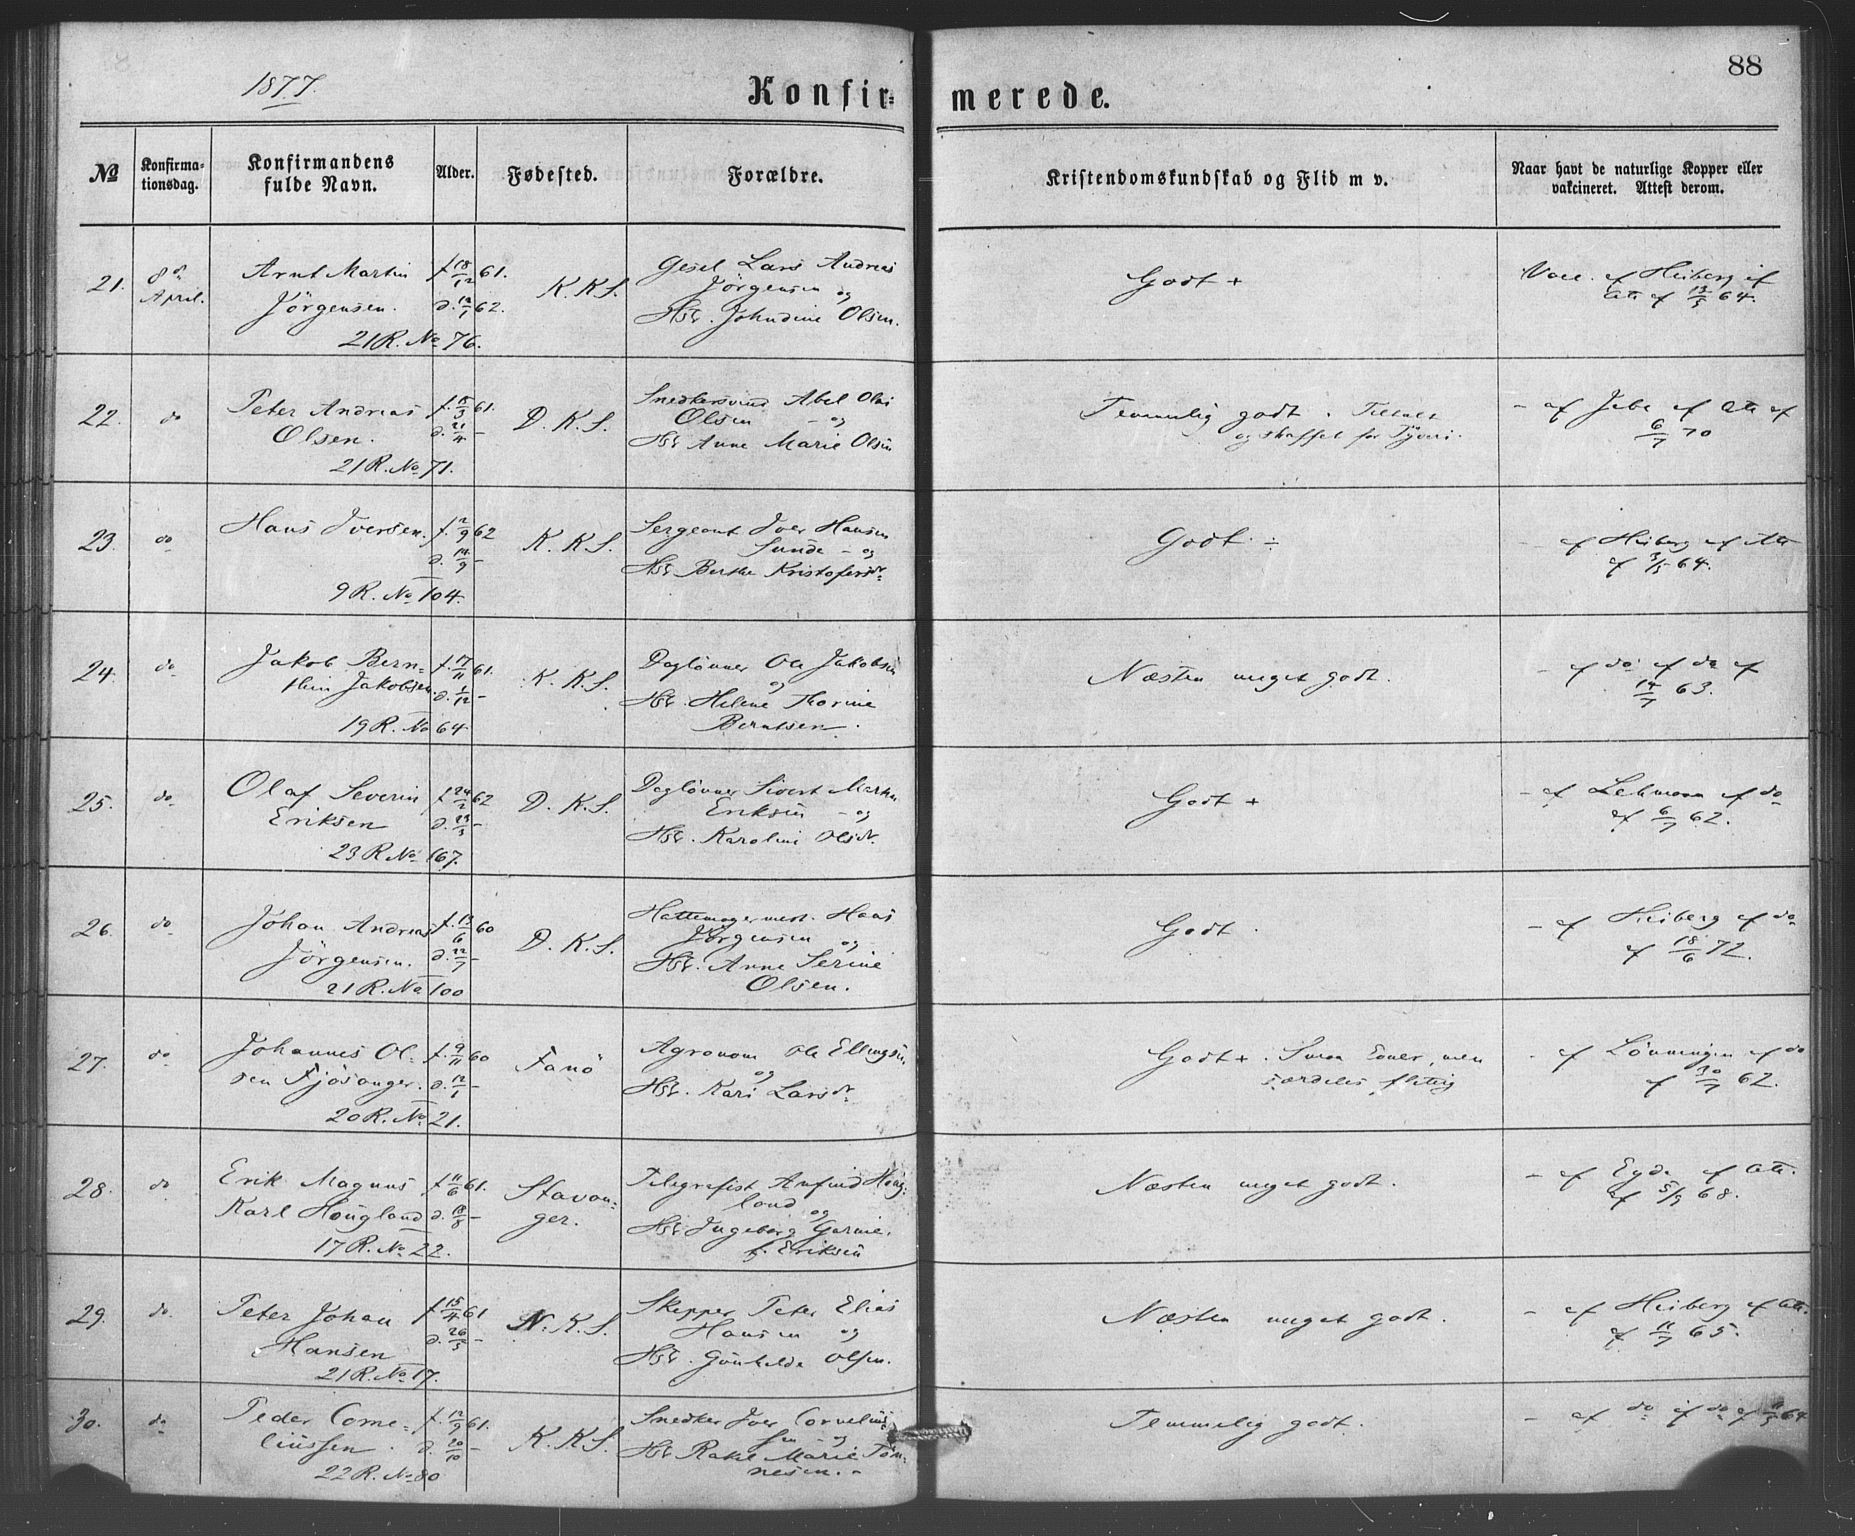 88
1877.
Konfir= merede.
No
Konfirma-
tionsdag.
Konfirmandens
fulde Navn.
Alder.
Fødested.
Forældre.
Kristendomskundskab og Flid m v.
Naar havt de naturlige Kopper eller
vakcineret. Attest derom.
21. 8de Arnt Martin f. 18/12 61. K. K. S. Gesel Lars Andreas Godt + Vacc. af Heiberg if
April. Jörgensen. d. 12/1 62. Jörgensen og Att. af 13/5 64.
21 R. No 76. Hst. Johndine Olsen.
22. do Peter Andreas f. 15/3 61. D. K. S. Snedkersvend Abel Olai Temmelig godt. Tiltalt – af Jebe if Att. af
Olsen. d. 21/4 – Olsen – og og straffet for Tyveri. 6/7 70
21 R. No 71. Hst. Anne Marie Olsen
23. do Hans Iversen. f. 2/9 62 K. K. S. Sergeant Iver Hansen Godt ÷ – af Heiberg if Att
d. 14/9 – Sunde – og af 3/5 64.
9 R. No 104. Hst Berthe Kristofersdr.
24. do Jakob Bern= f. 17/11 61. K. K. S. Daglönner Ole Jakobsen Næsten meget godt. – af do if do af
thin Jakobsen. d. 1/12 – og 14/7 63.
19 R. No 64 Hst. Helene Thorine
Berntsen.
25. do Olaf Severin f. 24/2 62 D. K. S. Daglönner Sivert Martin Godt + – af Lehmann if do
Eriksen d. 23/3 – Eriksen – og af 6/7 62.
23 R. No 167. Hst. Karoline Olsdr.
26. do Johan Andreas f. 13/6 60 D. K. S. Hattemagermest. Hans Godt. – af Heiberg if do
Jörgensen. d. 22/7 – Jörgensen og af 18/6 72.
21 R. No 100 Hst. Anne Serine
Olsen.
27. do Johannes Ol= f. 9/11 60 Fanö Agronom Ole Ellingsen Godt +. Smaa Evner, men – af Lönningen if do
sen Fjösanger. d. 12/1 – og særdeles flittig af 30/7 62.
20 R. No 21. Hst. Kari Larsdr.
28. do Erik Magnus f. 11/6 61. Stavan= Telegrafist Anfind Houg= Næsten meget godt. – af Eyde if Att.
Karl Hougland d. 18/8 – ger. land og af 5/9 68.
17 R. No 22. Hst Ingeborg Gurine,
f. Eriksen
29. do Peter Johan f. 15/4 61 N. K. S. Skipper Peter Elias Næsten meget godt. – af Heiberg if Att.
Hansen d. 26/5 – Hansen og af 11/7 65.
21 R. No 17. Hst. Gunhilde Olsen.
30. do Peder Corne= f. 12/9 61. K. K. S. Snedker Iver Cornelius Temmelig godt. – af do if do af 64
liussen. d. 20/10 – sen – og
22 R. No 80 Hst Rakel Marie Tön=
nesen. –